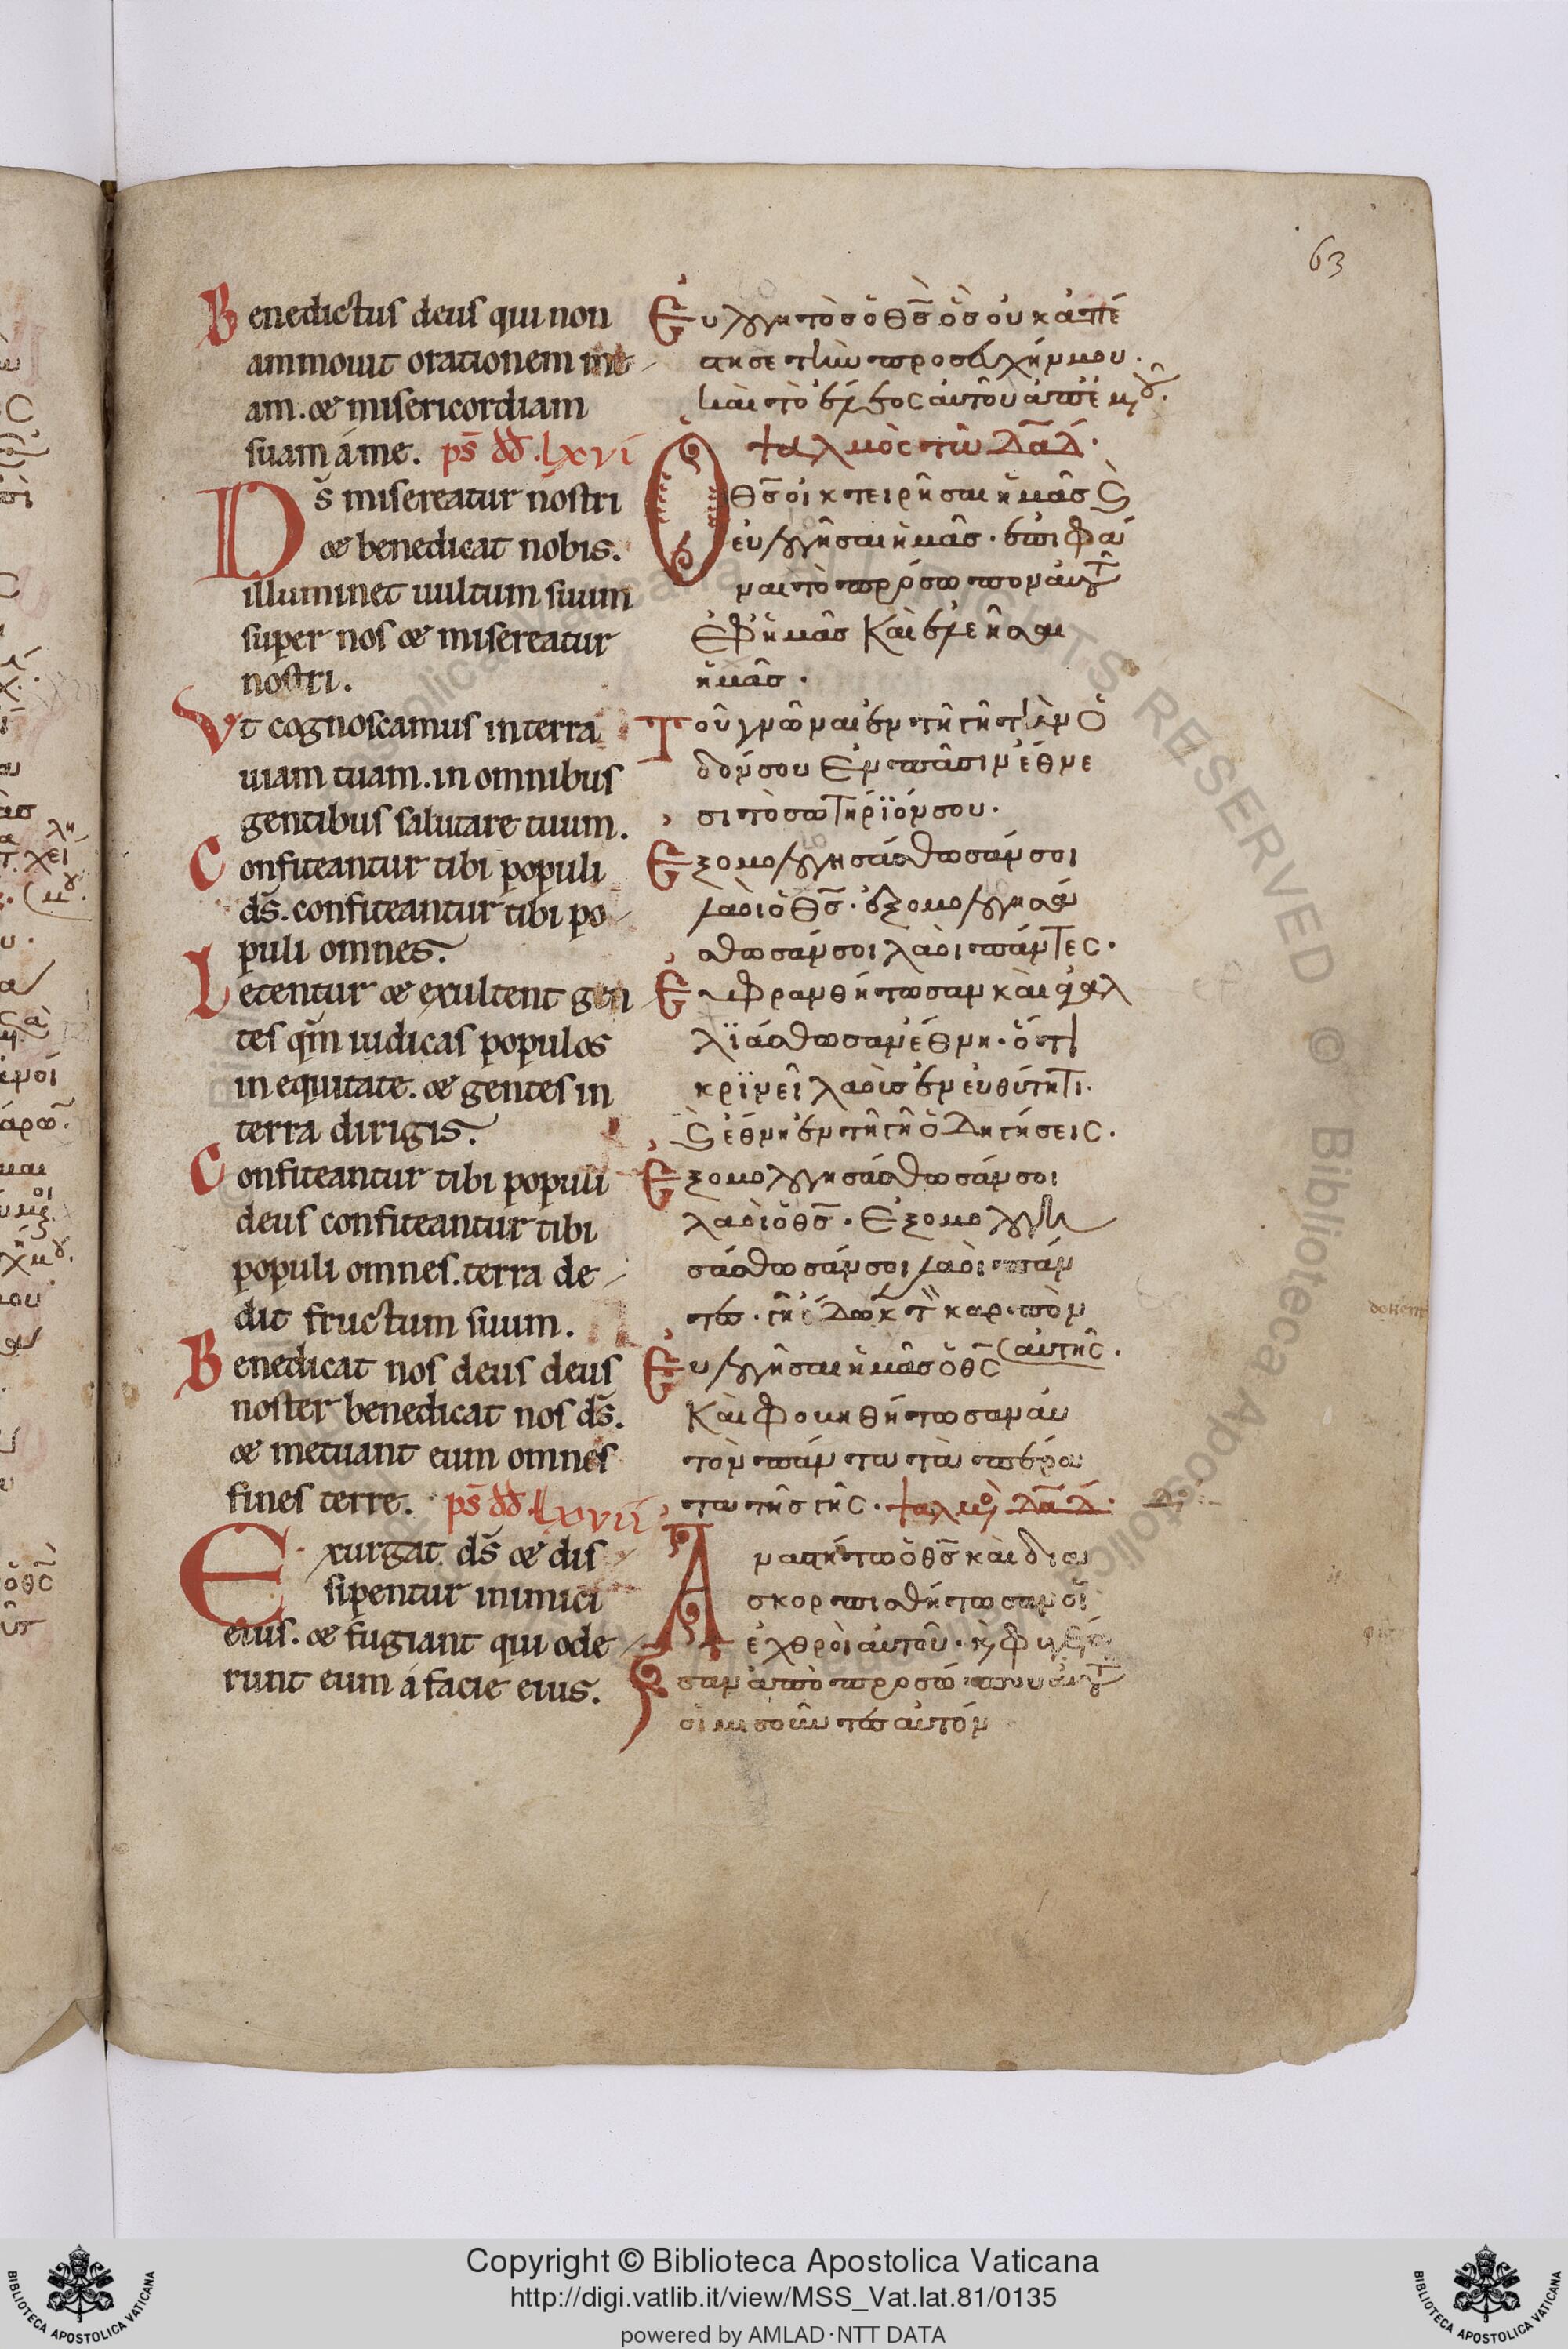 63
Benedictus deus qui non
ammouit orationem me
am. & misericordiam
suam á me. ps̄ dd̄. lxvi
Ds̄ misereatur nostri
& benedicat nobis.
illuminet uultum suum
super nos & misereatur
nostri.
Vt cognoscamus in terra
uiam tuam. in omnibus
gentibus salutare tuum.
Confiteantur tibi populi
ds̄. confiteantur tibi po
puli omnes.
Letentur & exultent gen
tes qm̄ iudicas populos
in equitate. & gentes in
terra dirigis.
Confiteantur tibi populi
deus confiteantur tibi
populi omnes. terra de
dit fructum suum.
Benedicat nos deus deus
noster benedicat nos ds̄.
& metuant eum omnes
fines terre. ps̄ dd̄ lxvii
Exurgat ds̄ & dis
sipentur inimici
eius. & fugiant qui ode
runt eum á facie eius.
Ἐυλογητὸσ ὁ θσ̄ ὃσ ὀυκ ἀπέ
τησε τὴν προσευχήν μου.
καὶ τὸ ἔλεος αυτοῦ ἀπ ἐμοῦ.
ψαλμὸς τῶ δᾱδ.
Ὁ θσ̄ οἰκτειρῆσαι ἡμᾶσ καὶ
ευλογῆσαι ἡμᾶσ. ἐπιφά
ναι τὸ πρόσωπον αυτοῦ
ἐφ ἡμᾶσ καὶ ἐλεῆσαι
ἡμᾶσ.
Τοῦ γνῶναι ἐν τῆ γῆ τὴν ὁ
δόν σου ἐν πᾶσιν ἔθνε
σι τὸ σωτήρϊόν σου.
Ἐξομολογησάσθωσάν σοι
λαοὶ ὁ θσ̄. ἐξομολογησά
σθωσάν σοι λαὸι πάντες.
Ἐυφρανθήτωσαν καὶ ἀγαλ
λϊάσθωσαν ἔθνη. ὅτι
κρϊνεῖ λαὸισ ἐν ευθύτητι.
καὶ ἔθνη ἐν τῆ γῆ ὁδηγήσεις.
Ἐξομολογησάσθωσάν σοι
λαὸι ὁ θσ̄. Ἐξομολογη
σάσθωσάν σοι λαὸι πάν
τεσ. γῆ ἔδωκε τὸν καρπὸν
αυτῆς.
Ἐυλογήσαι ἡμᾶσ ὁ θς̄
Καὶ φοβηθήτωσαν αυ
τὸν πάντα τὰ πέρα
τα τῆσ γῆς. ψαλμὸς δᾱδ.
Ἀναστήτω ὁ θσ̄ καὶ δια
σκορπισθήτωσαν οἱ
ἐχθρὸι αυτοῦ. καὶ φυγέτω
σαν ἀπὸ προσώπου αυτοῦ
οἱ μισοῦντεσ αυτόν
Copyright © Biblioteca Apostolica Vaticana
http://digi.vatlib.it/view/MSS_Vat.lat.81/0135
powered by AMLAD·NTT DATA
BIBLIOTECA APOSTOLICA VATICANA
BIBLIOTECA APOSTOLICA VATICANA